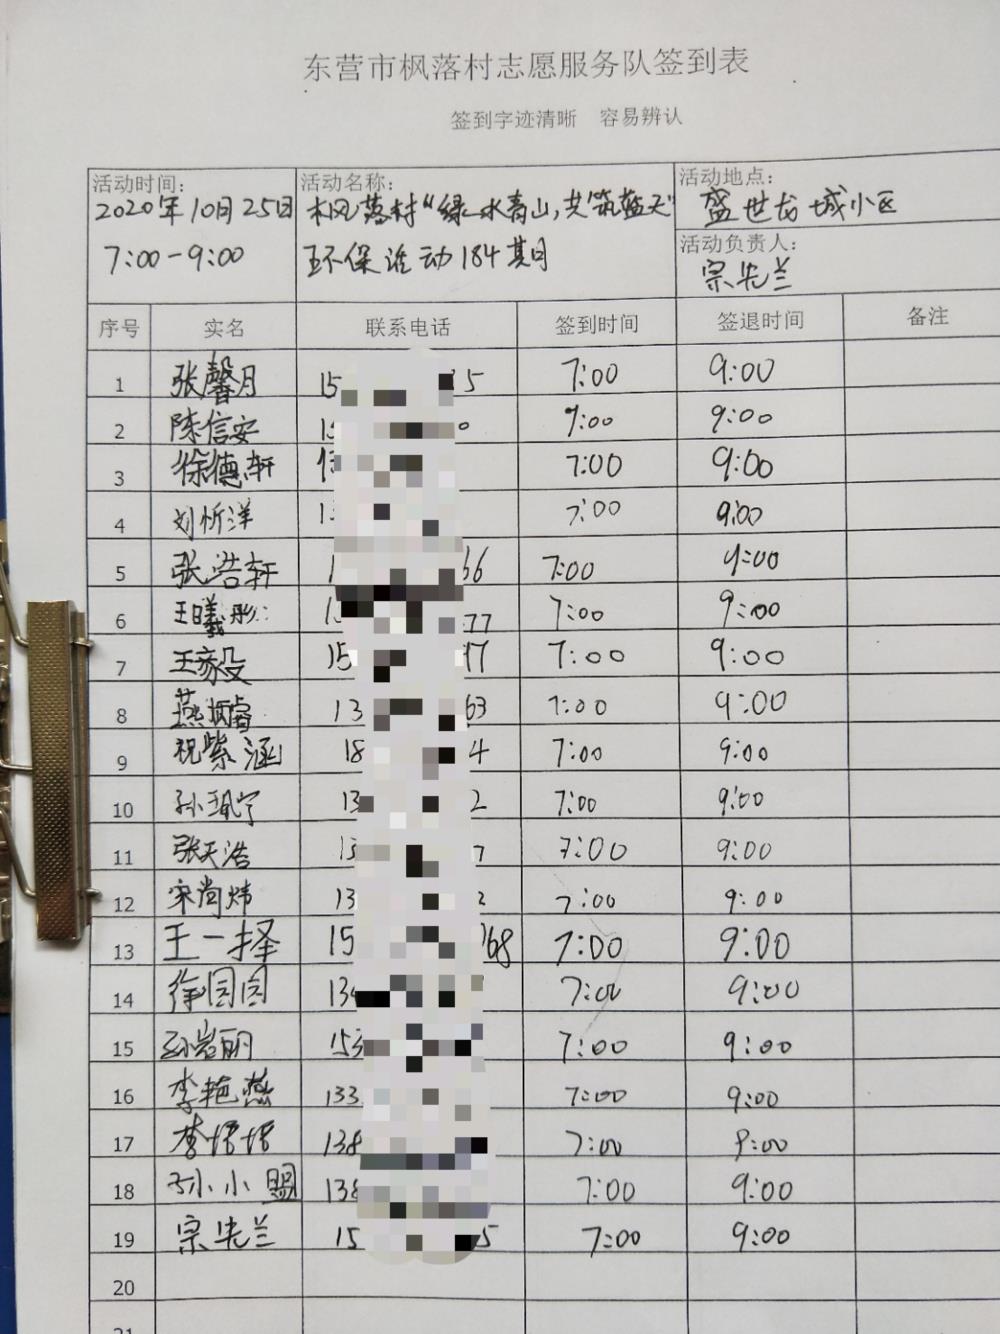 东营市枫落村志愿服务队签到表
签到字迹清晰 容易辨认
活动时间:
2020年10月25日
7:00-9:00
活动名称:
枫落村“绿水青山,共筑蓝天”
环保活动184期
活动地点:
盛世龙城小区
活动负责人:
宗先兰
序号 实名 联系电话 签到时间 签退时间 备注
1 张馨月 15 5 7:00 9:00
2 陈信安 7:00 9:00
3 徐德轩 7:00 9:00
4 刘忻洋 7:00 9:00
5 张浩轩 66 7:00 9:00
6 王曦彤 77 7:00 9:00
7 王 15 97 7:00 9:00
8 燕炳睿 13 63 7:00 9:00
9 祝紫涵 18 4 7:00 9:00
10 孙珮宁 13 2 7:00 9:00
11 张天浩 13 7 7:00 9:00
12 宋尚炜 13 2 7:00 9:00
13 王一择 15 68 7:00 9:00
14 徐园园 134 7:00 9:00
15 孙岩丽 153 7:00 9:00
16 李艳燕 133 7:00 9:00
17 李培培 138 7:00 9:00
18 孙小盟 138 7:00 9:00
19 宗先兰 15 5 7:00 9:00
20
21